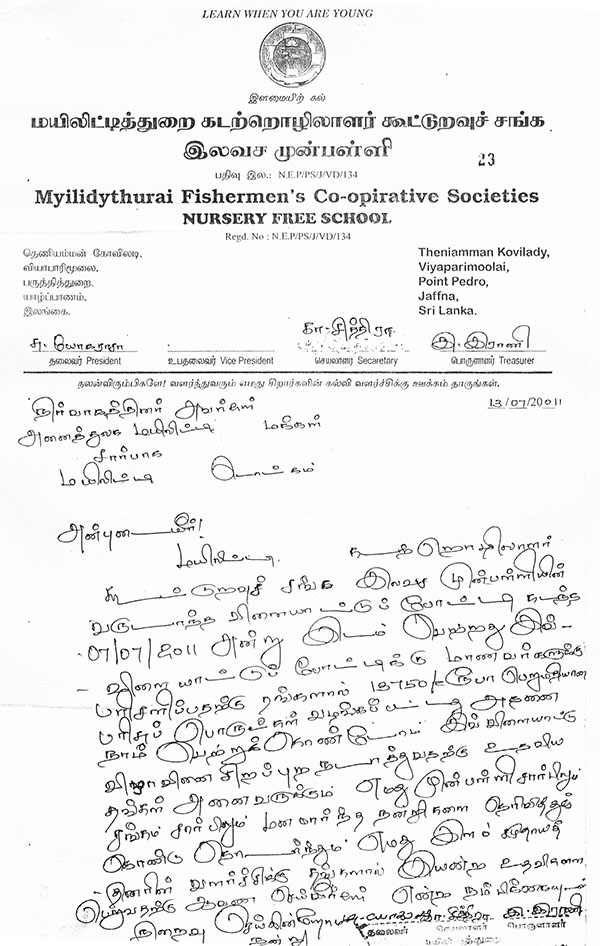 LEARN WHEN YOU ARE YOUNG
இளமையிற் கல்
மயிலிட்டித்துறை கடற்றொழிலாளர் கூட்டுறவுச் சங்க
இலவச முன்பள்ளி
23
பதிவு இல.: N.E.P/PS/J/VD/134
Myilidythurai Fishermen's Co-opirative Societies
NURSERY FREE SCHOOL
Regd. No : N.E.P/PS/J/VD/134
தெணியம்மன் கோவிலடி,
வியாபாரிமூலை,
பருத்தித்துறை,
யாழ்ப்பாணம்,
இலங்கை.
Theniamman Kovilady,
Viyaparimoolai,
Point Pedro,
Jaffna,
Sri Lanka.
ச. யோகராசா
கா. சித்திரா
இ. இராணி
தலைவர் President
உபதலைவர் Vice President
செயலாளர் Secaretary
பொருளாளர் Treasurer
நலன்விரும்பிகளே! வளர்ந்துவரும் எமது சிறார்களின் கல்வி வளர்ச்சிக்கு ஊக்கம் தாருங்கள்.
13/07/2011
நிர்வாகத்தினர் அவர்கள்
அனைத்துலக மயிலிட்டி மக்கள்
சார்பாக
மயிலிட்டி
அன்புடையீர்!
மயிலிட்டி கடற்றொழிலாளர்
கூட்டுறவுச் சங்க இலவச முன்பள்ளியின்
வருடாந்த விளையாட்டுப் போட்டி கடந்த
07/07/2011 அன்று இடம் பெற்றது இவ்-
- விளையாட்டுப் போட்டிக்கு மாணவர்களுக்கு
பரிசளிப்பதற்கு தங்களால் 13750/- ரூபா பெறுமதியான
பரிசுப் பொருட்கள் வழங்கப்பட்டது அதனை
நாம் பெற்றுக்கொண்டோம் இவ் விளையாட்டு
விழாவினை சிறப்புற நடாத்துவதற்கு உதவிய
தங்கள் அனைவருக்கும் எமது முன்பள்ளி சார்பிலும்
சங்கம் சார்பிலும் மனமார்ந்த நன்றிகளை தெரிவித்துக்
கொண்டு எமது இளம் சமுதாயத்
- தினரின் வளர்ச்சிக்கு தங்களால் இயன்ற உதவிகளை
பெறுவதற்கு ஆவண செய்வீர்கள் என்ற நம்பிக்கையுடன்
நிறைவு செய்கின்றோம் ச. யோகராசா கா. சித்திரா இ. இராணி
நன்றி தலைவர் செயலாளர் பொருளாளர்